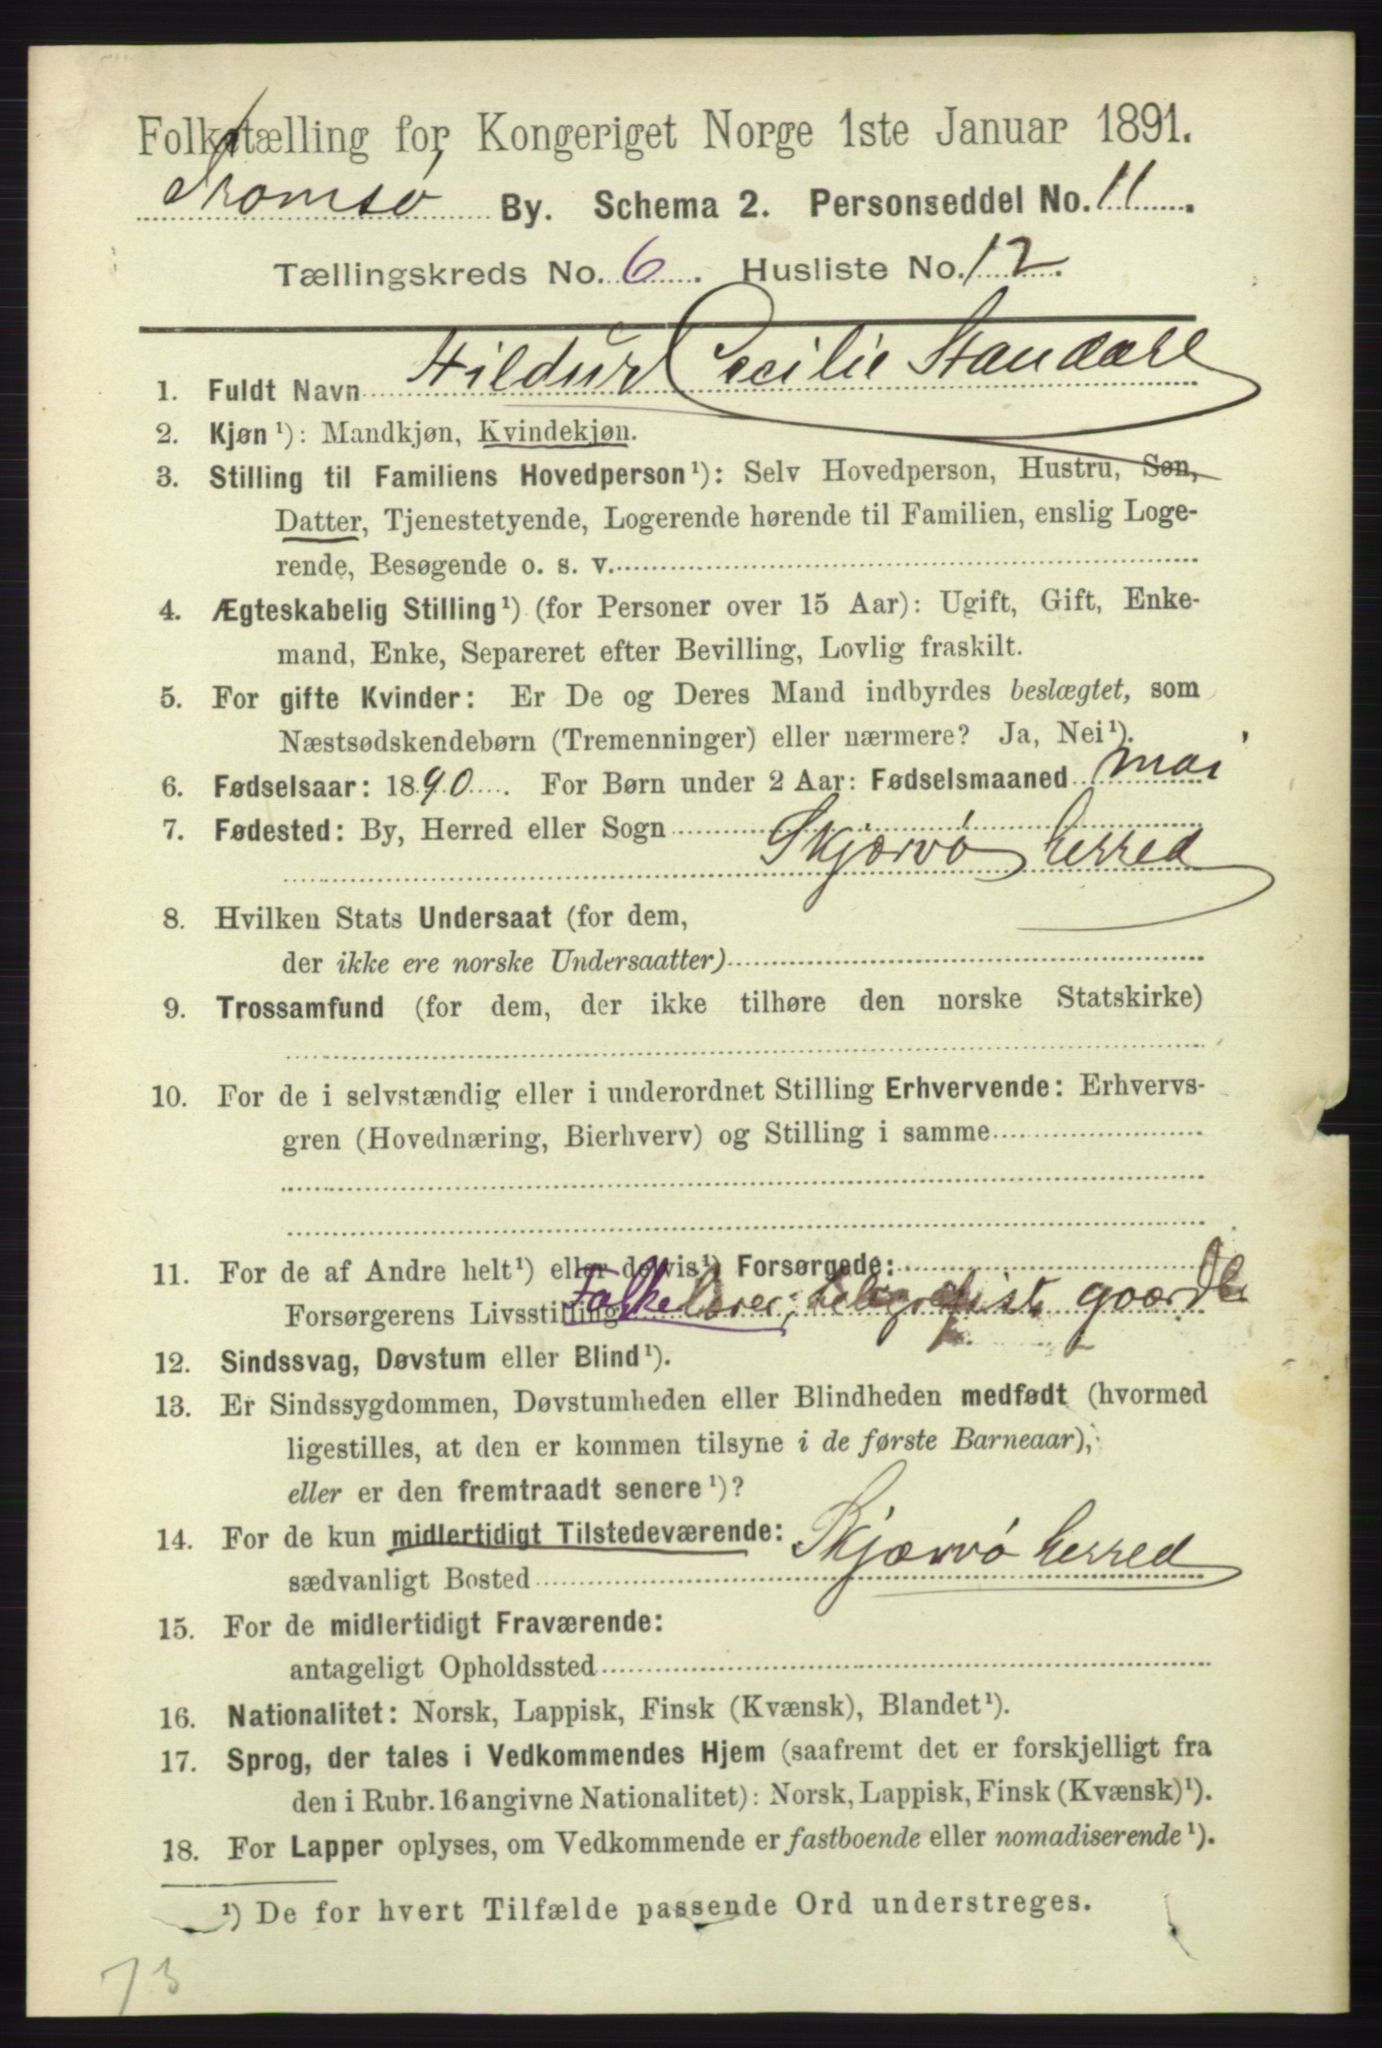 Folketælling for Kongeriget Norge 1ste Januar 1891.
Tromsø By. Schema 2. Personseddel No. 11.
Tællingskreds No. 6. Husliste No. 12.
1. Fuldt Navn Hildur Cecilie Standahl
2. Kjøn ¹): Mandkjøn, Kvindekjøn.
3. Stilling til Familiens Hovedperson ¹): Selv Hovedperson, Hustru, Søn,
Datter, Tjenestetyende, Logerende hørende til Familien, enslig Loge-
rende, Besøgende o. s. v.
4. Ægteskabelig Stilling ¹) (for Personer over 15 Aar): Ugift, Gift, Enke-
mand, Enke, Separeret efter Bevilling, Lovlig fraskilt.
5. For gifte Kvinder: Er De og Deres Mand indbyrdes beslægtet, som
Næstsødskendebørn (Tremenninger) eller nærmere? Ja, Nei ¹).
6. Fødselsaar: 1890. For Børn under 2 Aar: Fødselsmaaned mai
7. Fødested: By, Herred eller Sogn
Skjærvø herred
8. Hvilken Stats Undersaat (for dem,
der ikke ere norske Undersaatter)
9. Trossamfund (for dem, der ikke tilhøre den norske Statskirke)
10. For de i selvstændig eller i underordnet Stilling Erhvervende: Erhvervs-
gren (Hovednæring, Bierhverv) og Stilling i samme
11. For de af Andre helt ¹) eller delvis ¹) Forsørgede:
Forsørgerens Livsstilling Folkelærer, telegrafist,
12. Sindssvag, Døvstum eller Blind ¹).
13. Er Sindssygdommen, Døvstumheden eller Blindheden medfødt (hvormed
ligestilles, at den er kommen tilsyne i de første Barneaar),
eller er den fremtraadt senere ¹)?
14. For de kun midlertidigt Tilstedeværende:
sædvanligt Bosted Skjærvø herred
15. For de midlertidigt Fraværende:
antageligt Opholdssted
16. Nationalitet: Norsk, Lappisk, Finsk (Kvænsk), Blandet ¹).
17. Sprog, der tales i Vedkommendes Hjem (saafremt det er forskjelligt fra
den i Rubr. 16 angivne Nationalitet): Norsk, Lappisk, Finsk (Kvænsk) ¹).
18. For Lapper oplyses, om Vedkommende er fastboende eller nomadiserende ¹).
¹) De for hvert Tilfælde passende Ord understreges.
73